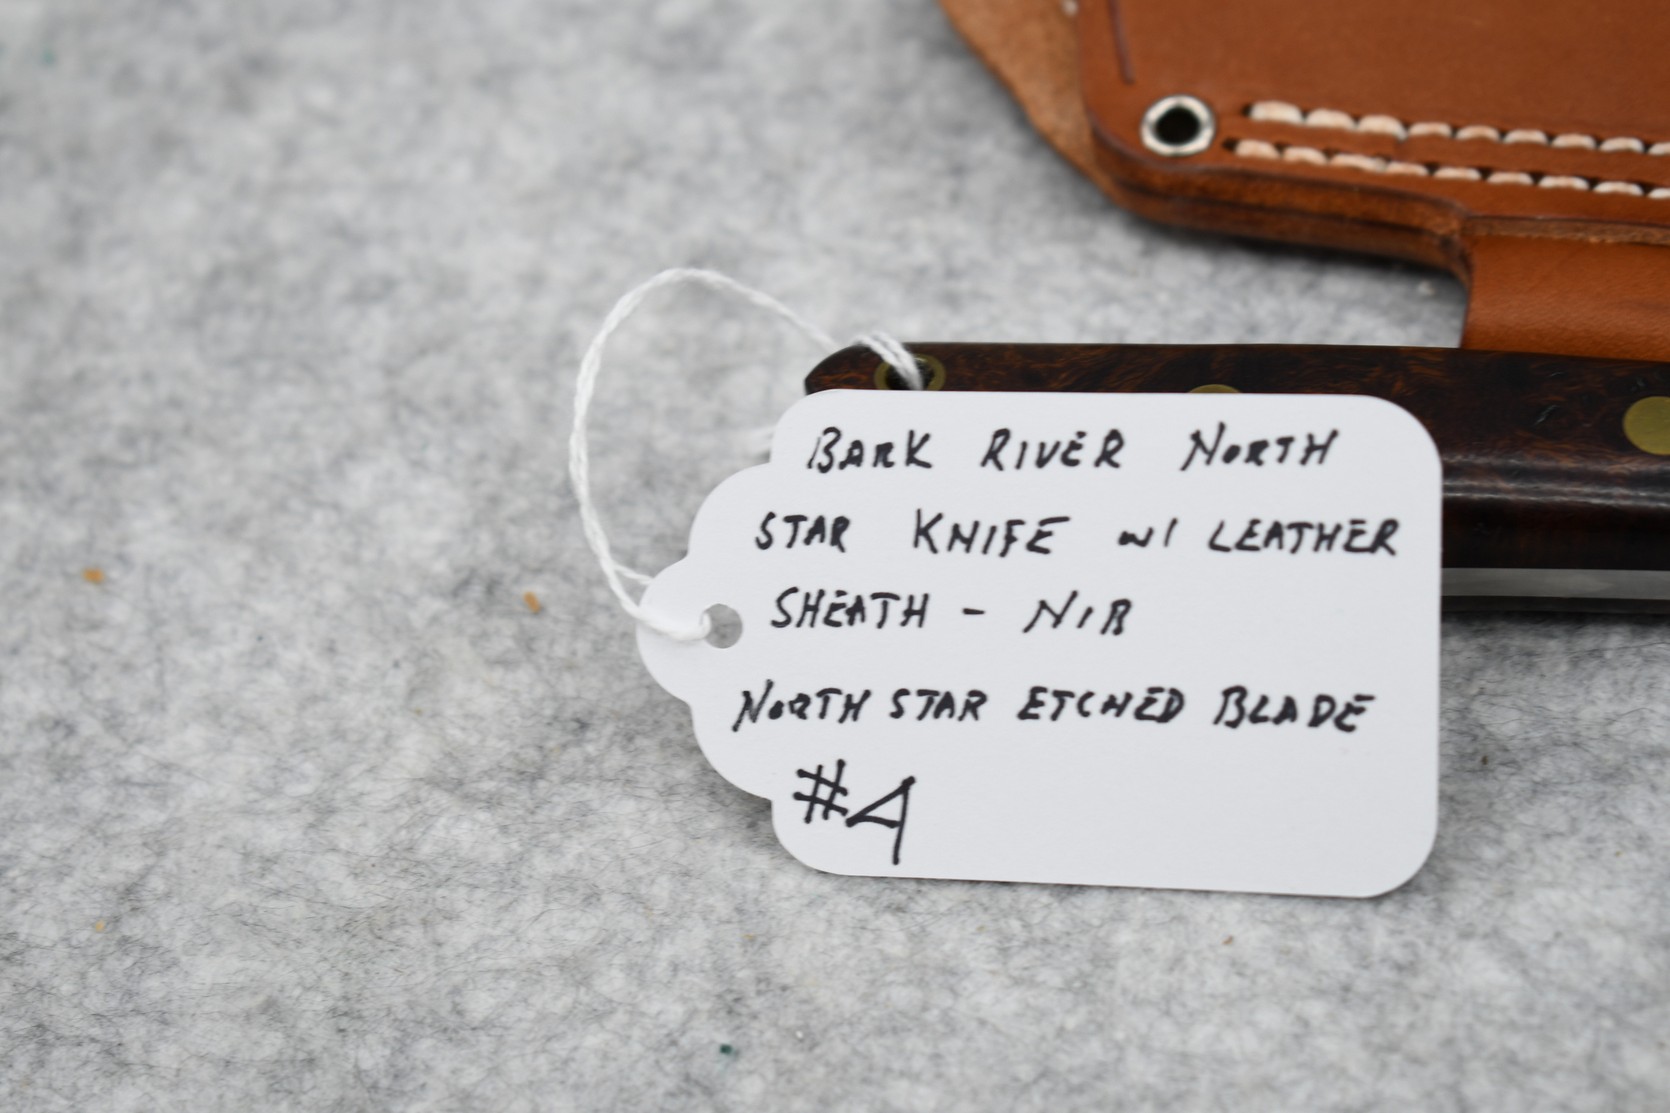 BARK RIVER NORTH
STAR KNIFE w/ LEATHER
SHEATH - NIB
NORTH STAR ETCHED BLADE
#4